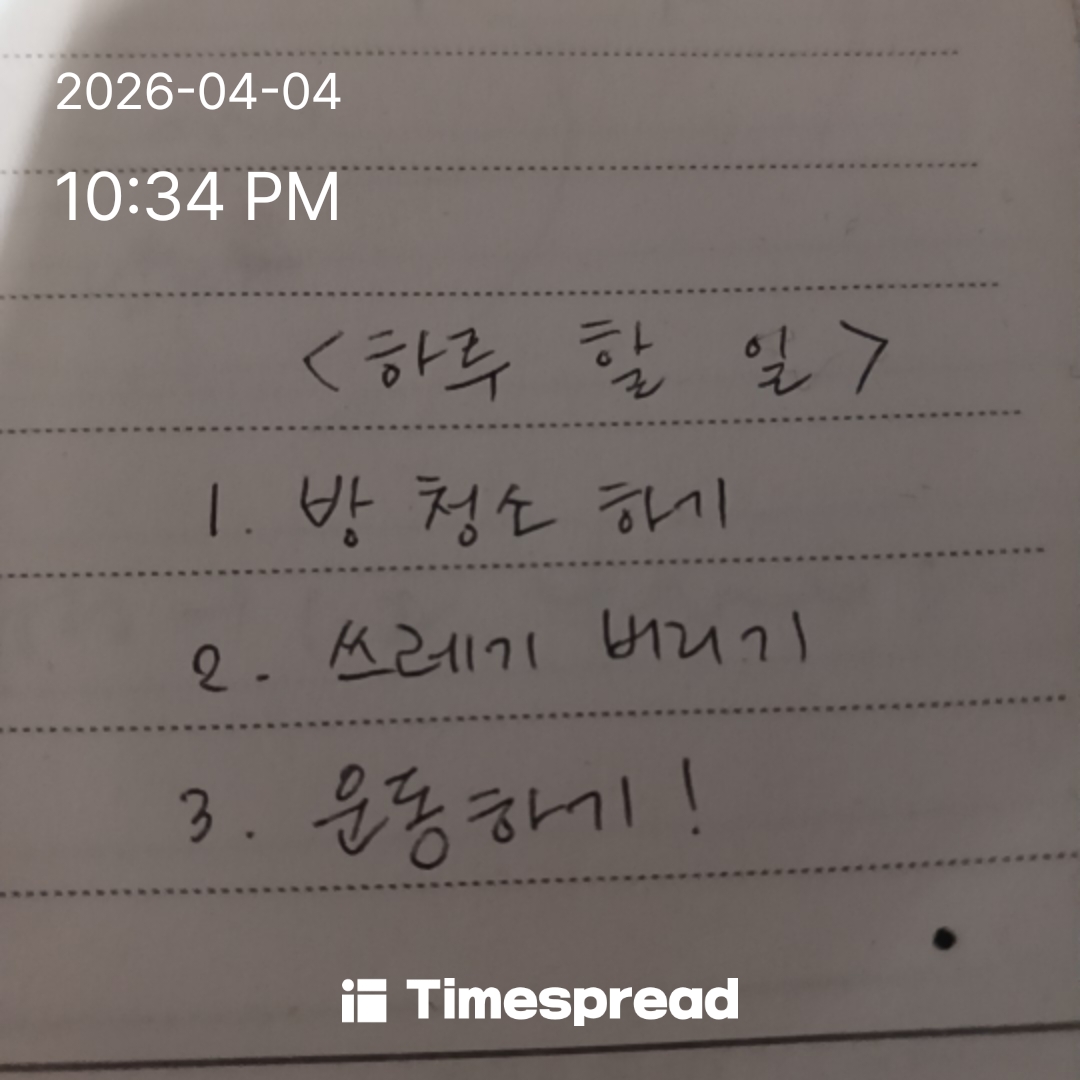 2026-04-04
10:34 PM
<하루 할 일>
1. 방 청소 하기
2. 쓰레기 버리기
3. 운동하기!
Timespread